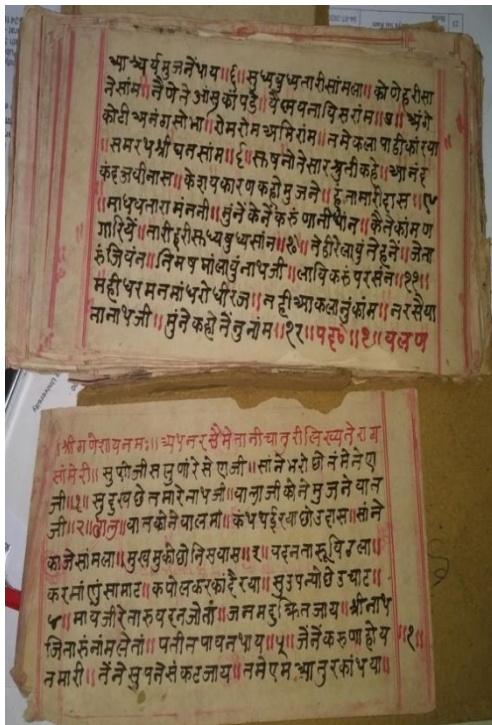 आश्चर्यमुजनेंथाय॥६॥सुध्यबुध्यतारीसांमला॥कोणेहरीसा
नेसांम॥नेणेतेआसुकांपडे॥वेसमयनाविसरांम॥७॥अंगे
कोटीअनंगसोभा॥रोमरोमअभिरांम॥तमेकलापाडीकांरया
॥समरथश्रीघनसांम॥८॥सहनोनेसारश्रुतीकहे॥आनंद
कंदअवीनास॥केशयकारणकहोमुजने॥हुंतमारीदास॥९
॥माधवतारामंननी॥मुंनेकेनेंकरुंणानीधांन॥केनेकांमण
गारियें॥तारीहरीसुध्यबुध्यसांन॥१०॥नेहीरेलावुंनेहुनें॥जेना
रुंजियंन॥निमषमांलावुंनाथजी॥लाविकरुंपरसंन॥११॥
महीधरमनमांधरोधीरज॥नहीआकलानुंकांम॥नरसैया
नानाथजी॥मुंनेकहोनेंतुनांम॥१२॥पद॥१॥चलण
॥श्रीगणेशायनमः॥अथनरसैमेतानीचातुरीलिख्यतेराग
सांमेरी॥सुणोजीसलुणांरेसेएजी॥सांनेभरोछोनंमेनेए
जी॥१॥सुदुखछेतमारेनाथजी॥वालाजीकोनेमुजनेवात
जी॥२॥ढाल॥वातकोनेवालमा॥कंथथईरयाछोउदास॥सांने
काजेसांमला॥मुखमुकोछोनिसवास॥३॥वदनतासूविठला॥
करमांणुंसामाट॥कपोलकरकांदैरया॥सुउपन्योछेउचाट॥
४॥मायजीरेतारुवदनजोतां॥जनमदुक्रितजाय॥श्रीनाथ
जितारुंनांमलेतां॥पतीतपावनथाय॥५॥जेंनेंकरुणाहोय
तमारी॥नेंनेंसुपनेसंकटजाय॥तमेएमआतुरकांथया॥
॥१॥
University